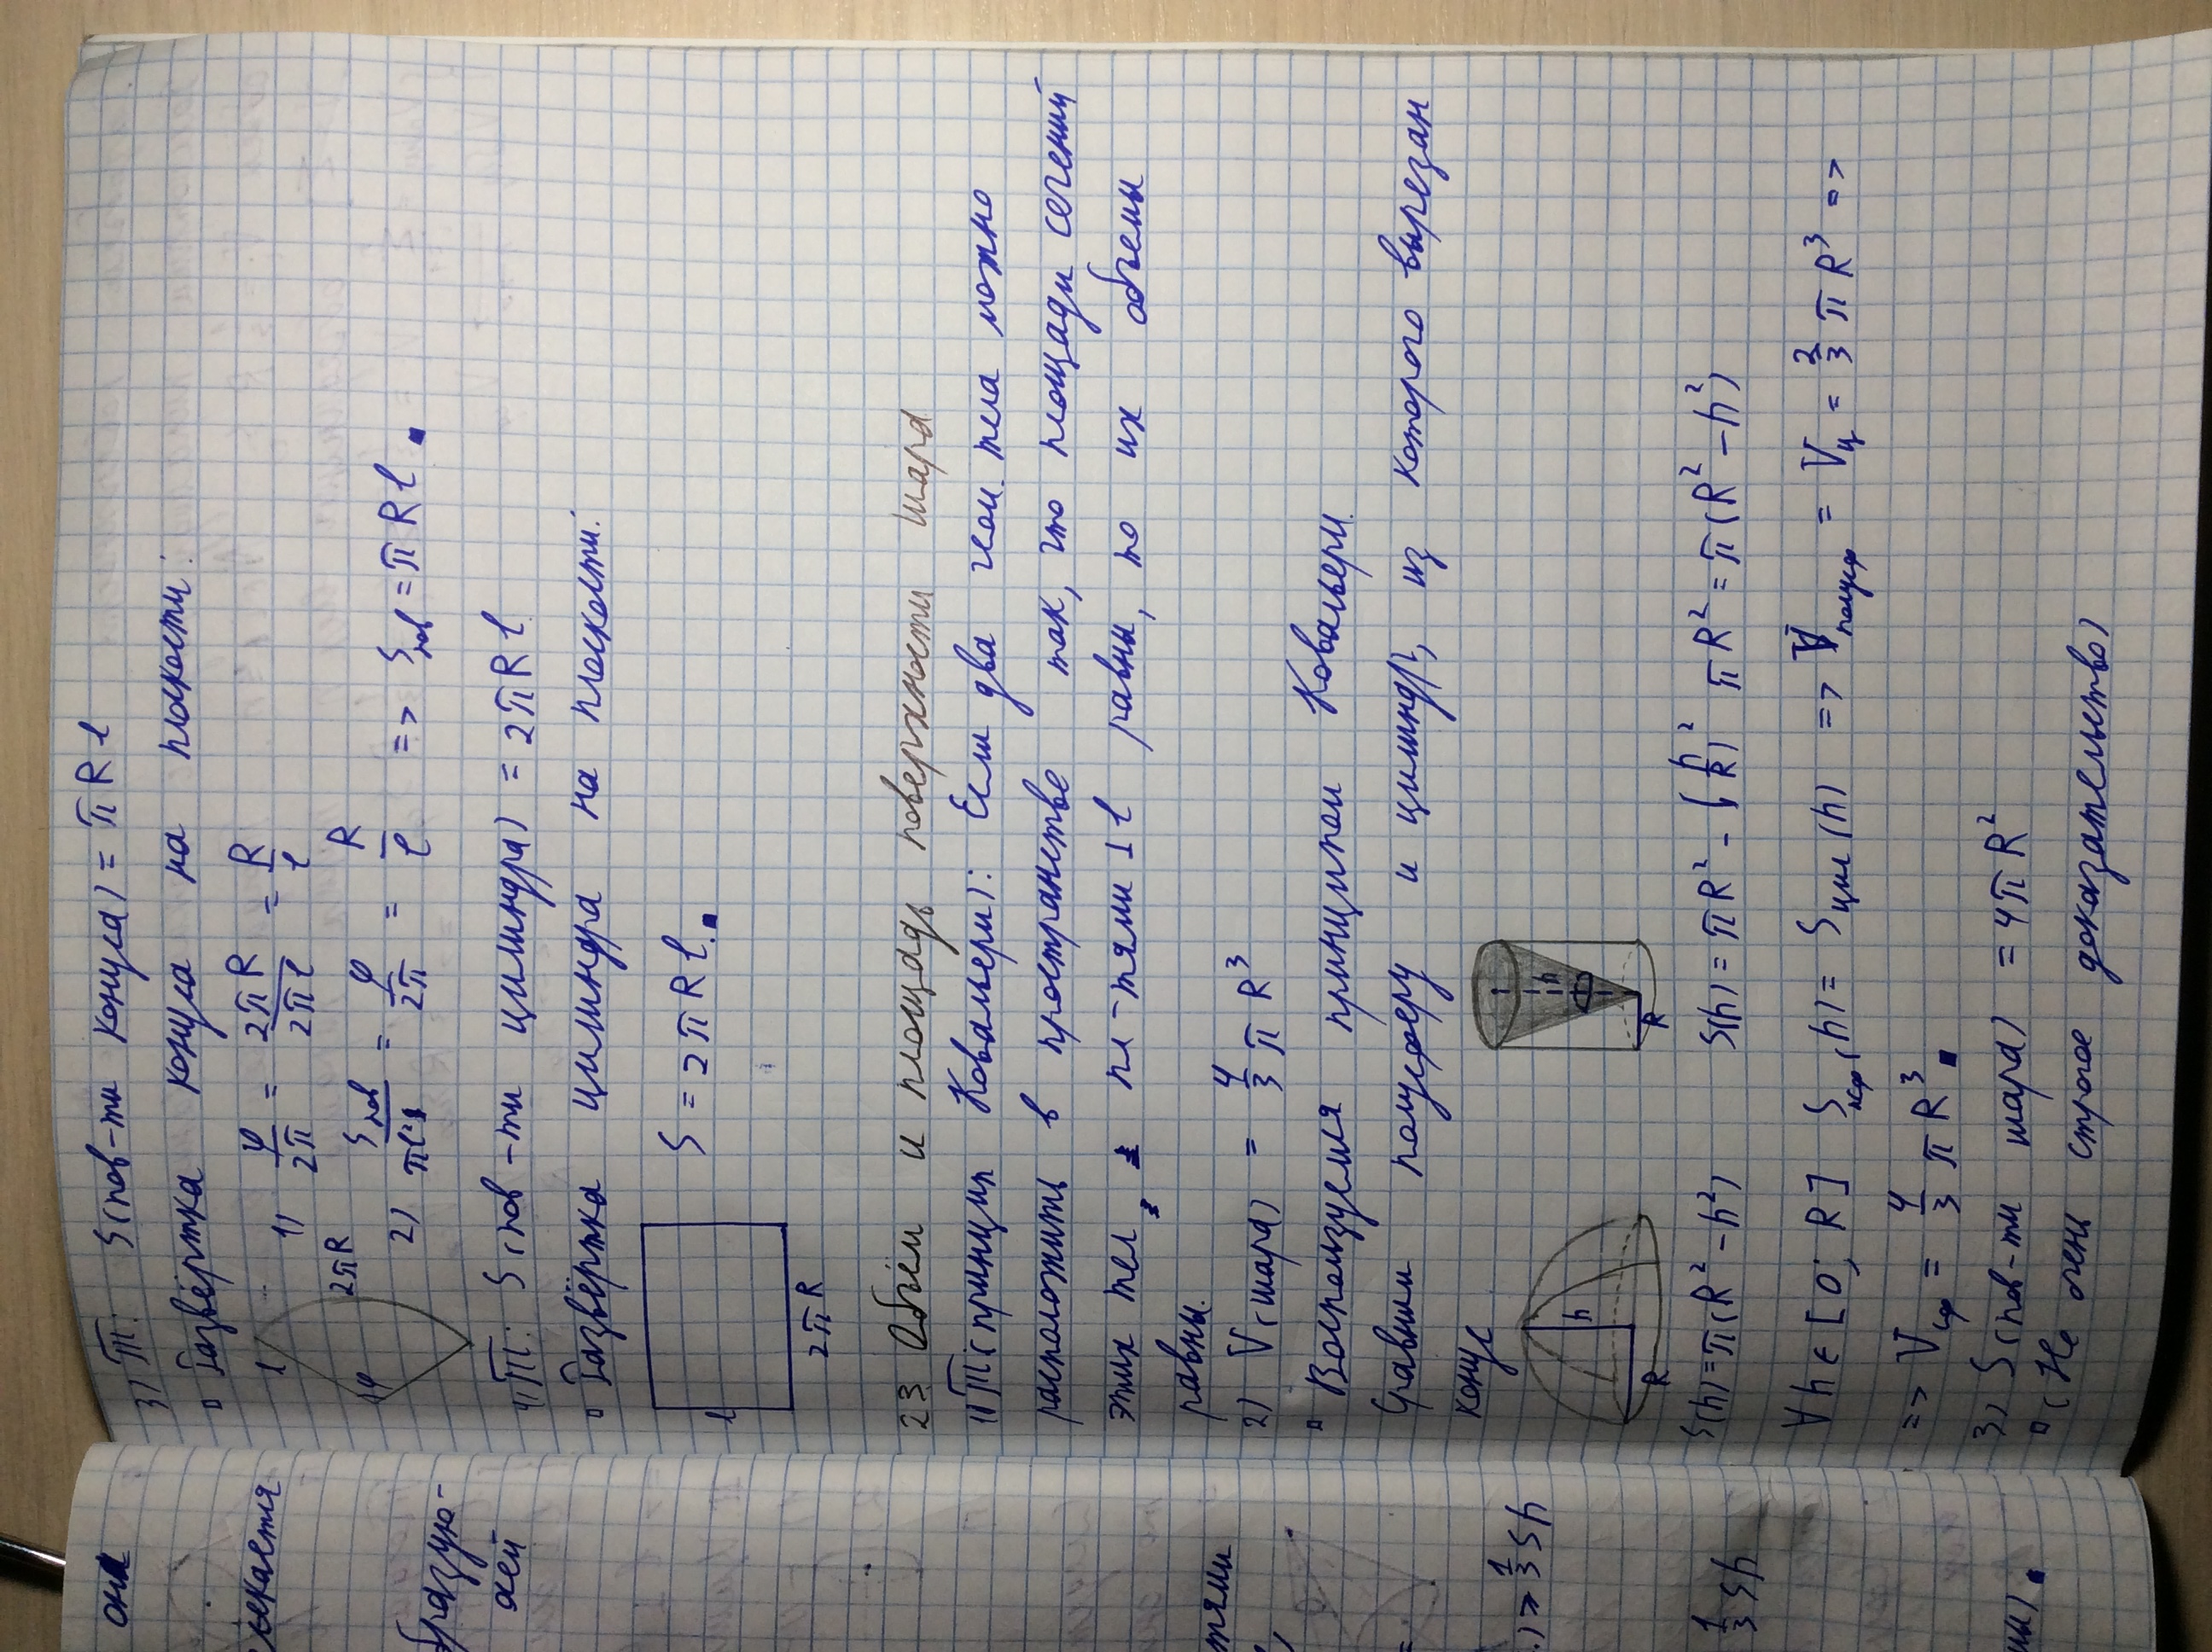 3) Т: S(пов-ти конуса) = πRl
▫ Развёртка конуса на плоскости:
l
φ
2πR
1) φ/2π = 2πR/2πl = R/l
2) Sпов/πl² = φ/2π = R/l => Sпов = πRl ▪
4) Т: S(пов-ти цилиндра) = 2πRl
▫ Развёртка цилиндра на плоскости:
l
2πR
S = 2πRl. ▪
23. Объём и площадь поверхности шара
1) Т(принцип Ковальери): Если два геом. тела можно
расположить в пространстве так, что площади сечений
этих тел пл-тями ⊥ l равны, то их объемы
равны.
2) V(шара) = 4/3 πR³
▫ Воспользуемся принципом Ковальери.
Сравним полусферу и цилиндр, из которого вырезан
конус
h
R
h
R
S(h) = π(R² - h²)
S(h) = πR² - (h/R)² πR² = π(R² - h²)
∀h ∈ [0; R] Sпсф(h) = Sцил(h) => Vполусф = Vц = 2/3 πR³ =>
=> Vсф = 4/3 πR³ ▪
3) S(пов-ти шара) = 4πR²
▫ (Не очень строгое доказательство)
она
екается
бразую-
ей
тями
) => 1/3 Sh
1/3 Sh